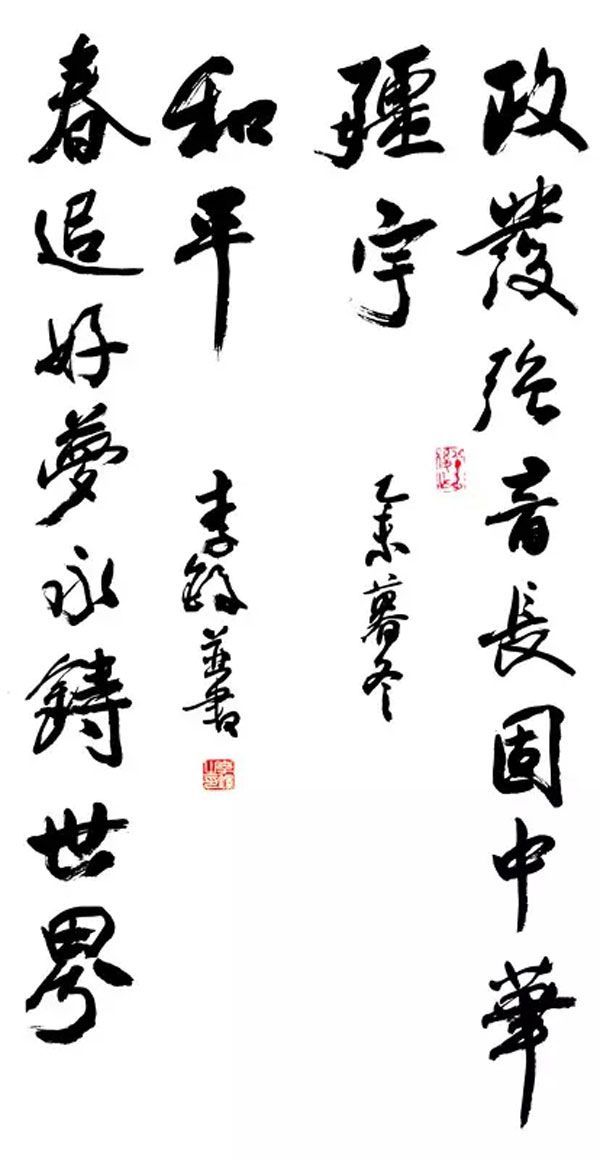 政發強音長固中華
疆宇
乙未暮冬
春追好夢永鑄世界
和平
李並書